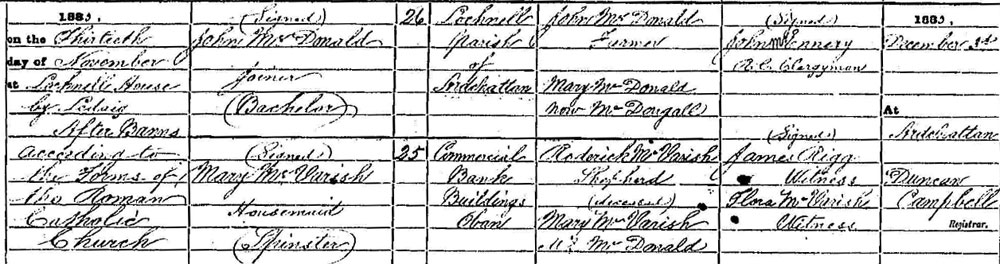 1883,
on the Thirtieth
day of November
at Lochnell House
by Ledaig
After Banns
according to
the Forms of
the Roman
Catholic
Church
(Signed)
John McDonald
Joiner
(Bachelor)
(Signed)
Mary McVarish
Housemaid
(Spinster)
26
25
Lochnell
Parish
of
Ardchattan
Commercial
Bank
Buildings
Oban
John McDonald
Farmer
Mary McDonald
now McDougall
Roderick McVarish
Shepherd
(deceased)
Mary McVarish
M.S. McDonald
(Signed)
John McEnnery
R.C. Clergyman
(Signed)
James Rigg
Witness
Flora McVarish
Witness
1883,
December 3rd
At
Ardchattan
Duncan
Campbell
Registrar.